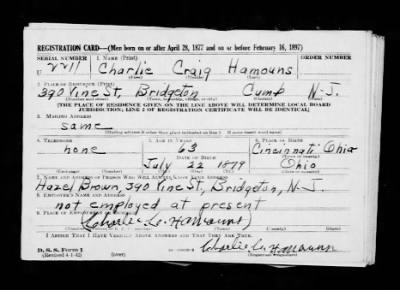 REGISTRATION CARD—(Men born on or after April 28, 1877 and on or before February 16, 1897)
SERIAL NUMBER 1. NAME (Print) ORDER NUMBER
U 2211 Charlie Craig Hamouns
(First) (Middle) (Last)
2. PLACE OF RESIDENCE (Print)
390 Vine St, Bridgeton Cump N-J.
(Number and street) (Town, township, village, or city) (County) (State)
[THE PLACE OF RESIDENCE GIVEN ON THE LINE ABOVE WILL DETERMINE LOCAL BOARD
JURISDICTION; LINE 2 OF REGISTRATION CERTIFICATE WILL BE IDENTICAL]
3. MAILING ADDRESS
same
[Mailing address if other than place indicated on line 2. If same insert word same]
4. TELEPHONE 5. AGE IN YEARS 6. PLACE OF BIRTH
none 63 Cincinnati Ohio
DATE OF BIRTH
July 22 1879 Ohio
7. NAME AND ADDRESS OF PERSON WHO WILL ALWAYS KNOW YOUR ADDRESS
Hazel Brown, 390 Vine St, Bridgeton, N-J.
8. EMPLOYER'S NAME AND ADDRESS
not employed at present
9. PLACE OF EMPLOYMENT OR BUSINESS
(Charlie Hamouns)
I AFFIRM THAT I HAVE VERIFIED ABOVE ANSWERS AND THAT THEY ARE TRUE.
D. S. S. Form 1 Charlie Hamounn
(Revised 4-1-42) (over) (Registrant's signature)